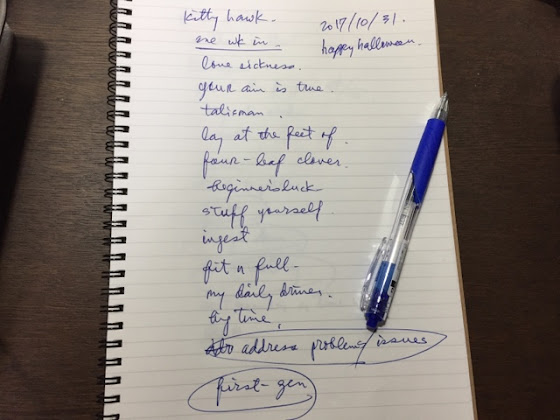 kitty hawk.
2017/10/31.
see uk in.
happy halloween.
love sickness.
your aim is true.
talisman.
lay at the feet of.
four-leaf clover.
beginner's luck
stuff yourself.
ingest
fit n full-
my daily driver.
big time,
address problems/issues
first-gen